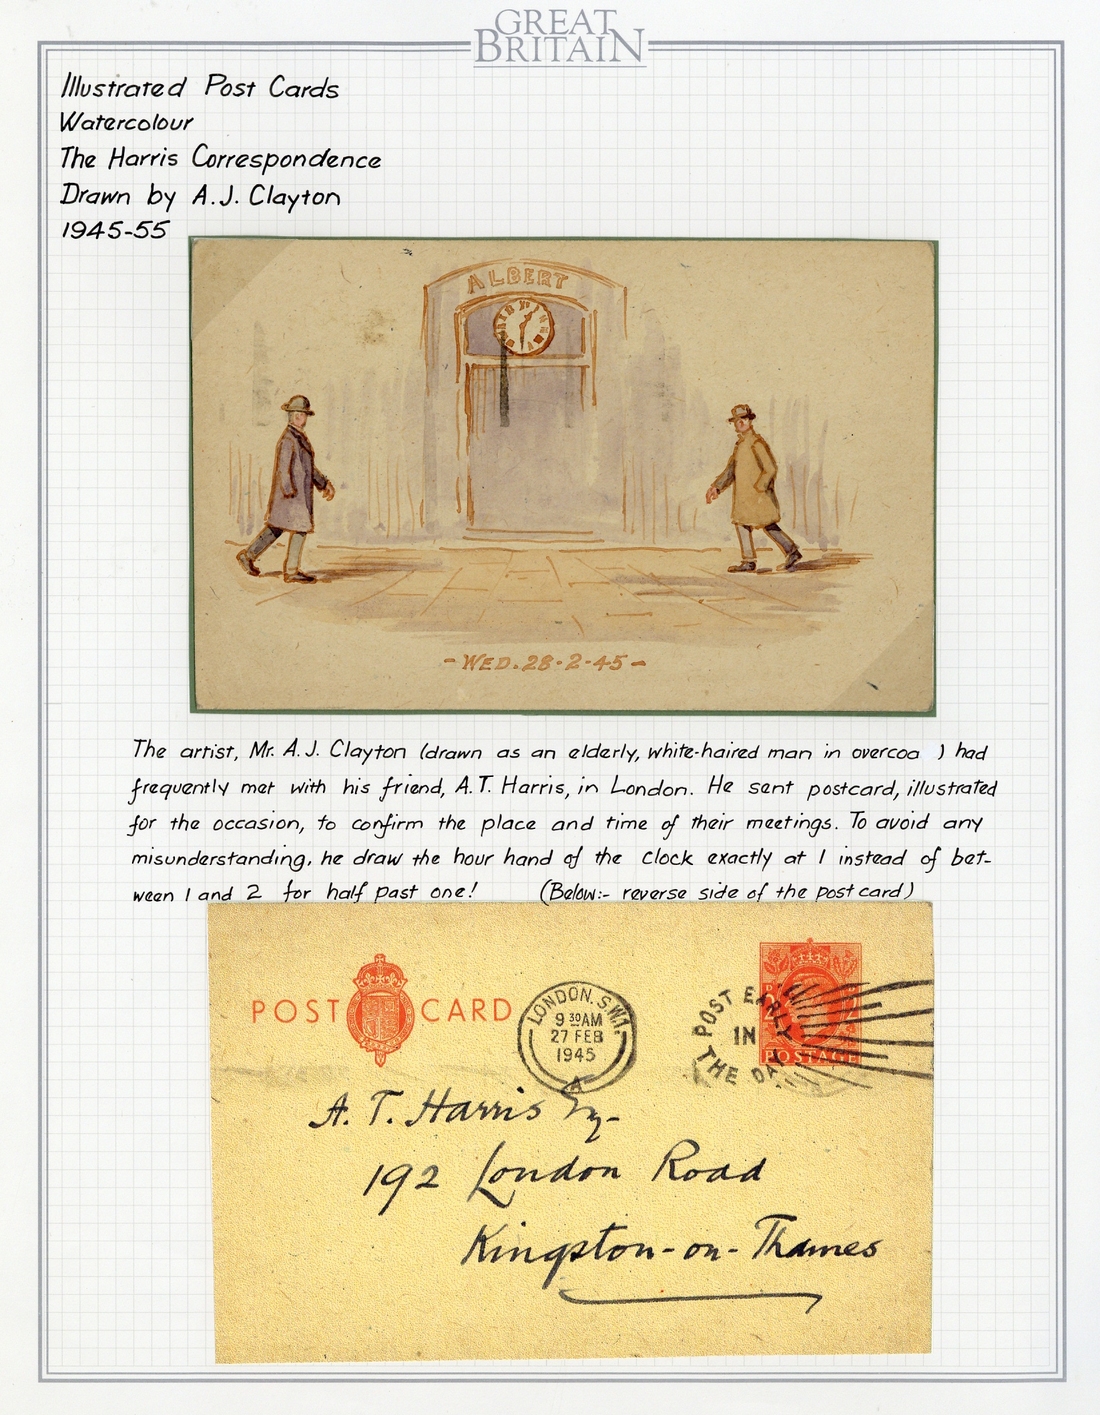 GREAT
BRITAIN
Illustrated Post Cards
Watercolour
The Harris Correspondence
Drawn by A.J. Clayton
1945-55
ALBERT
- WED. 28 · 2 · 45 -
The artist, Mr. A.J. Clayton (drawn as an elderly, white-haired man in overcoa ) had
frequently met with his friend, A.T. Harris, in London. He sent postcard, illustrated
for the occasion, to confirm the place and time of their meetings. To avoid any
misunderstanding, he draw the hour hand of the clock exactly at 1 instead of bet-
ween 1 and 2 for half past one! (Below:- reverse side of the post card)
POST CARD
LONDON. S.W.1.
9 30 AM
27 FEB
1945
A
POST EARLY
IN
THE DAY
POSTAGE
A. T. Harris Esq-
192 London Road
Kingston-on-Thames